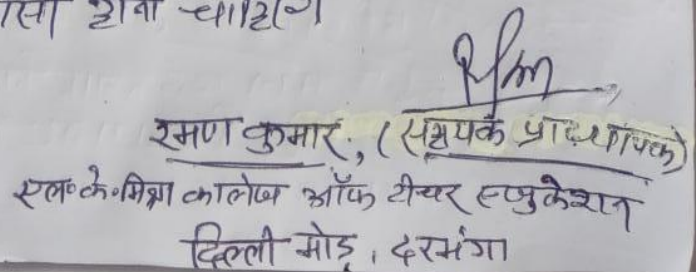 ऐसा होना चाहिए।
रमण कुमार, (सहायक प्राध्यापक)
एल॰के॰मिश्रा कालेज ऑफ टीचर एजुकेशन
दिल्ली मोड़, दरभंगा